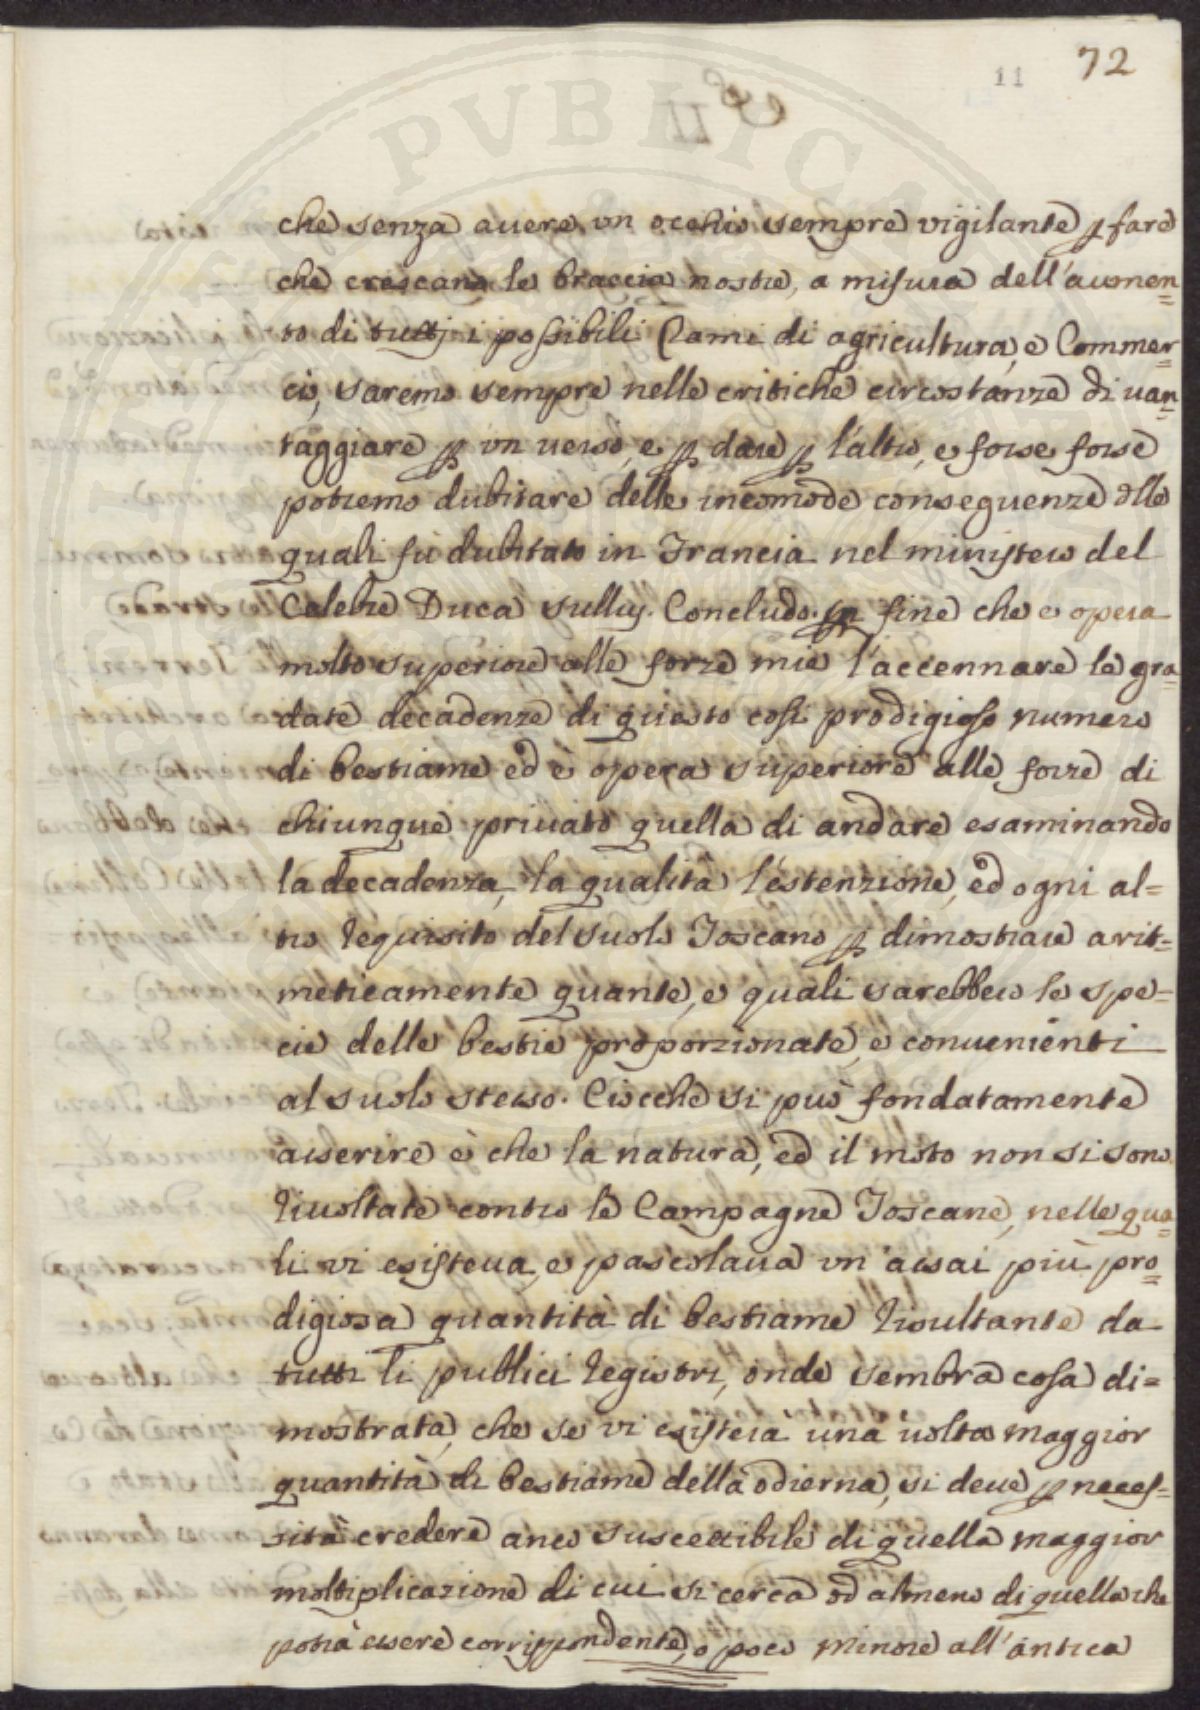 11 72
che senza avere un occhio sempre vigilante p fare
che crescano le braccia nostre, a misura dell'aumen=
to di tutti i possibili Rami di agricultura, e Commer=
cio, saremo sempre nelle critiche circostanze di van=
taggiare p un verso, e p dare p l'altro, e forse forse
potremo dubitare delle incomode conseguenze dlle
quali fù dubitato in Francia nel ministero del
Celebre Duca Sully. Concludo in fine che e opera
molto superiore alle forze mie l'accennare le gra=
date decadenze di questo così prodigioso numero
di bestiame ed è opera superiore alle forze di
chiunque privato quella di andare esaminando
la decadenza, la qualità l'estenzione, ed ogni al=
tro requisito del suolo Toscano p dimostrare arit=
meticamente quante, e quali sarebbero le spe=
cie delle bestie proporzionate, e convenienti
al suolo stesso. Ciocche si può fondatamente
asserire è che la natura, ed il moto non si sono
rivoltate contro le Campagne Toscane, nelle qua=
li vi esisteva, e pascolava un'assai più pro=
digiosa quantità di bestiame risultante da
tutti li publici registri, onde sembra cosa di=
mostrata, che se vi esisteva una volta maggior
quantità di bestiame della odierna, si deve p neces=
sità credere anco suscettibile di quella maggior
moltiplicazione di cui si cerca od almeno di quella che
potrà essere corrispondente, o poco minore all'antica